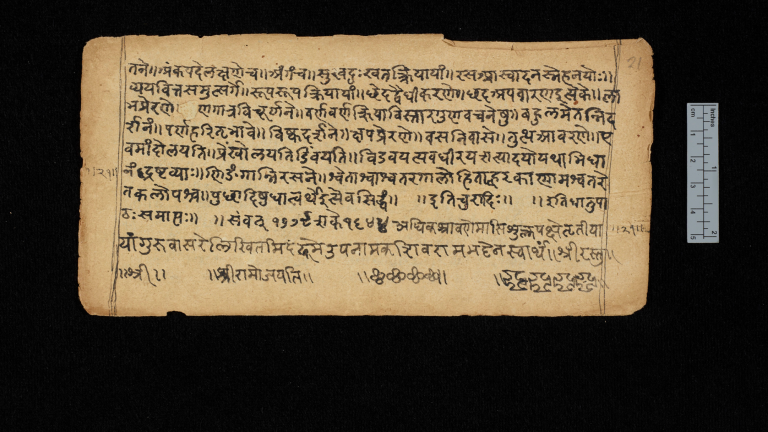 तने॥ अंकपदेलक्षणेच॥ अंगच॥ सुखदुःखतत्क्रियायां॥ रसआस्वादनस्नेहनयोः॥
व्ययवित्तसमुत्सर्गे॥ रूपरूपक्रियायां॥ छेदद्वैधीकरणे॥ छदअपवारणइत्येके॥ ला
भप्रेरणे॥ व्रणगात्रविचूर्णने॥ वर्णवर्णक्रियाविस्तारगुणवचनेषु॥ बहुलमेतन्निद
र्शनं॥ पर्णहरितभावे॥ विष्कदर्शने॥ क्षपप्रेरणे॥ वसनिवासे॥ तुत्थआवरणे॥ ए
वमांदोलयति॥ प्रेंखोलयति विडंबयति॥ अवधीरय इत्यादयोयथाभिधा
नं द्रष्टव्याः॥ णिङंगान्निरसने॥ श्वेताश्वाश्वतरगालोडिताह्वरकाणामश्वतरे
तकलोपश्च॥ पुच्छादिषुधात्वर्थइत्येवसिद्धं॥ ॥इतिचुरादिः॥ ॥इतिधातुपा
ठः समाप्तः॥ ॥संवत् १७७९ शके १६४४ अधिकश्रावणमासिशुक्लपक्षे तृतीया
यांगुरुवासरेलिखितमिदं उपनामकशिवरामभट्टेनस्वार्थं॥ श्रीरस्तु॥
॥श्री॥ ॥श्रीरामोजयति॥